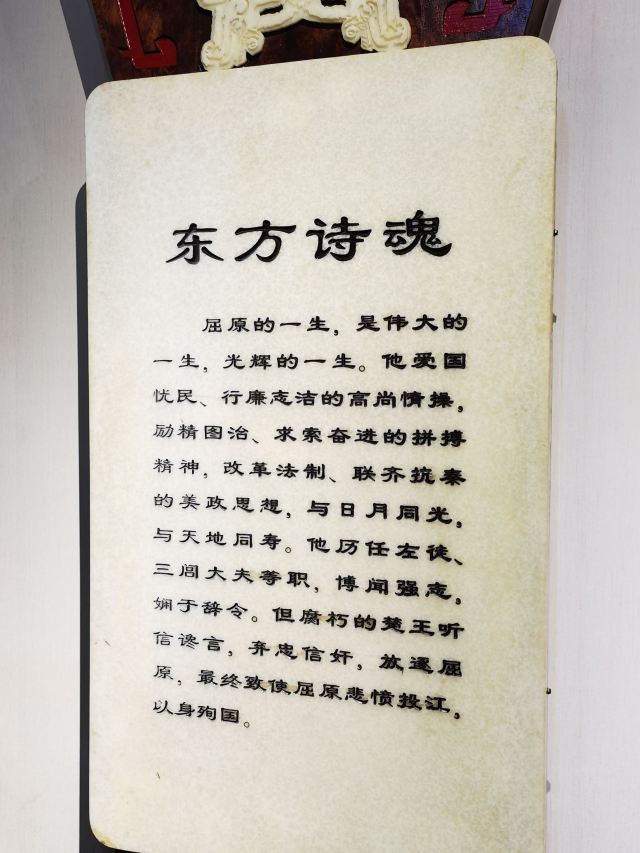 东方诗魂
屈原的一生，是伟大的
一生，光辉的一生。他爱国
忧民、行廉志洁的高尚情操，
励精图治、求索奋进的拼搏
精神，改革法制、联齐抗秦
的美政思想，与日月同光，
与天地同寿。他历任左徒、
三闾大夫等职，博闻强志，
娴于辞令。但腐朽的楚王听
信谗言，弃忠信奸，放逐屈
原，最终致使屈原悲愤投江，
以身殉国。